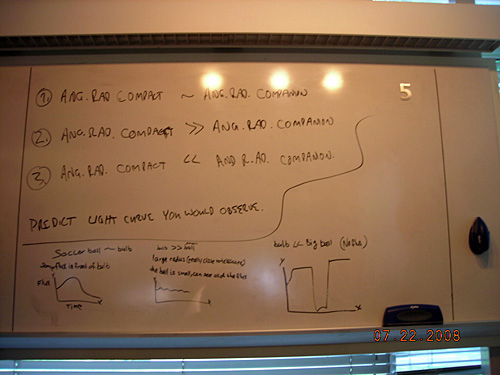 1. ANG. RAD COMPACT ~ ANG. RAD. COMPANION
5
2. ANG. RAD. COMPACT >> ANG. RAD. COMPANION
3. ANG. RAD. COMPACT << AND R.AD. COMPANION.
PREDICT LIGHT CURVE YOU WOULD OBSERVE.
Soccer ball ~ bulb
bulb >> ball
bulb << Big ball (No Flux)
in front of bulb
large radius
the ball is small, can see all the flux
Flux
Time
Y
X
07.22.2008